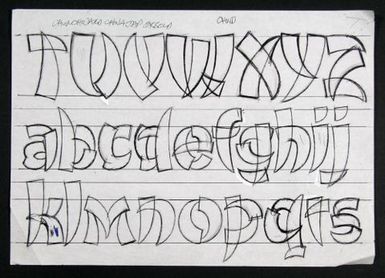 TUVWXYZ
abcdefghij
klmnopqrs